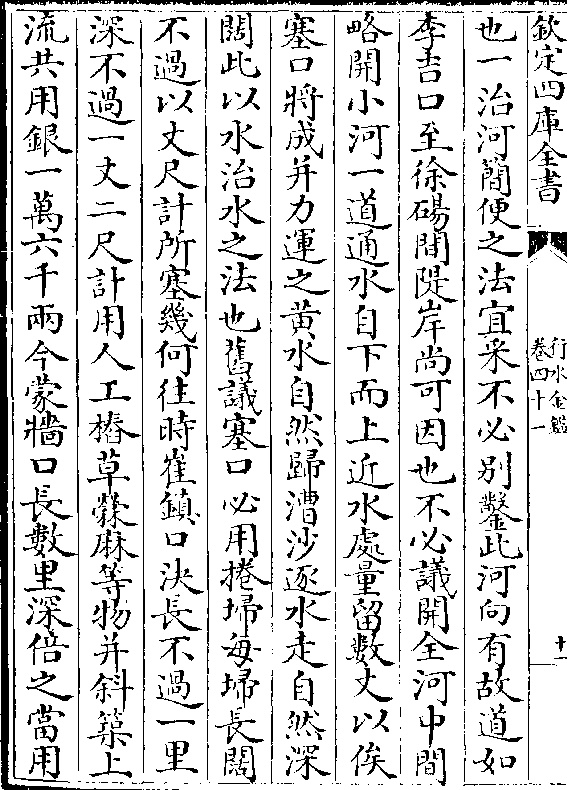 欽定四庫全書
行水金鑑
卷四十一
十一
也一治河簡便之法宜采不必别鑿此河向有故道如
李吉口至徐碭間隄岸尚可因也不必議開全河中間
略開小河一道通水自下而上近水處量留數丈以俟
塞口將成并力運之黄水自然歸漕沙逐水走自然深
闊此以水治水之法也舊議塞口必用捲埽每埽長闊
不過以丈尺計所塞幾何往時崔鎮口決長不過一里
深不過一丈二尺計用人工樁草檾麻等物并斜築上
流共用銀一萬六千兩今蒙牆口長數里深倍之當用